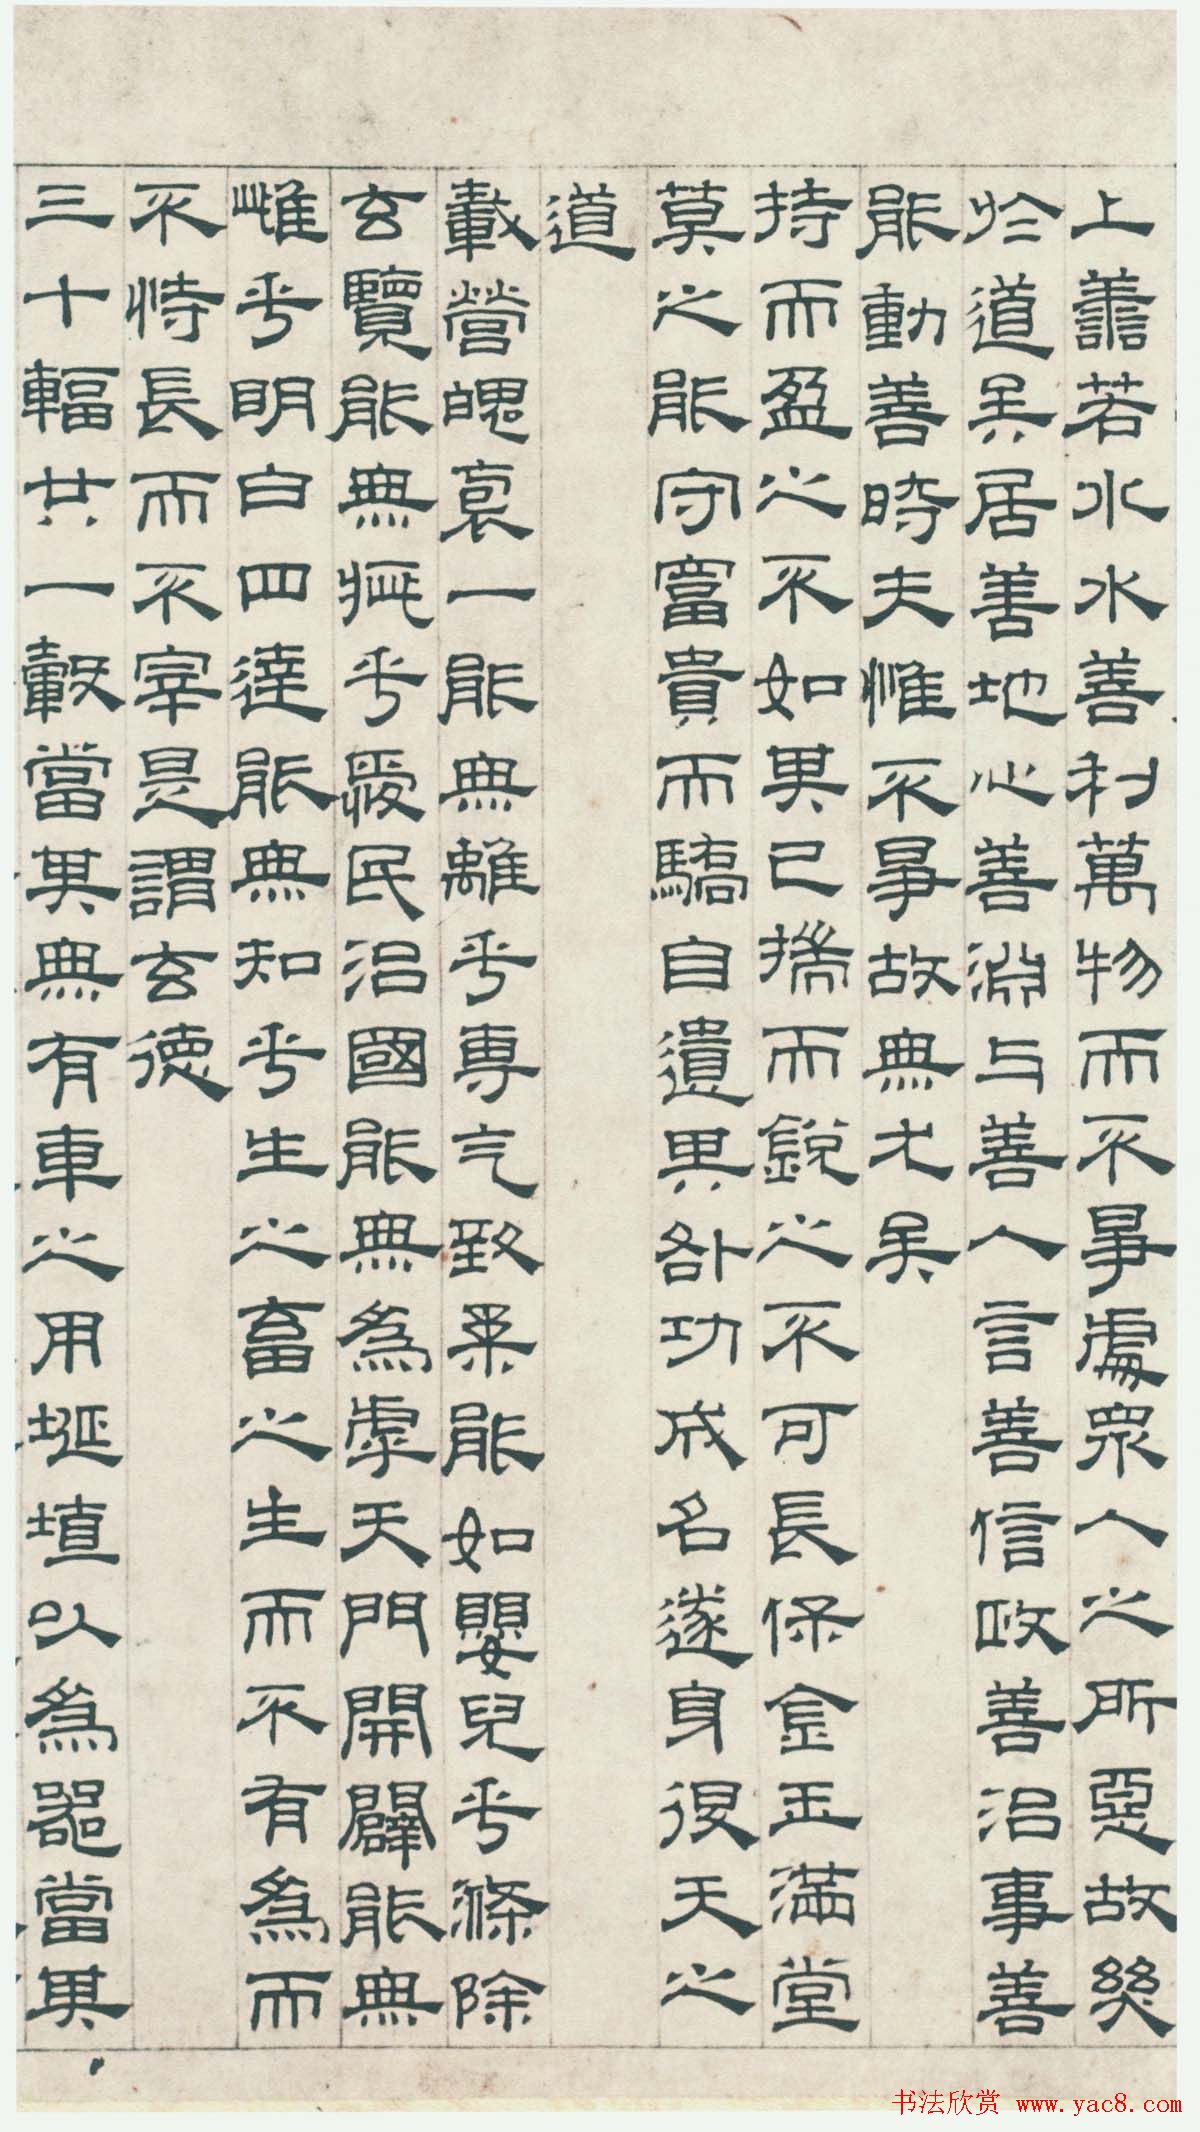 上譱若水水善利萬物而不爭處衆人之所惡故幾
於道矣居善地心善淵与善人言善信政善治事善
能動善時夫惟不爭故無尤矣
持而盈之不如其已揣而銳之不可長保金玉滿堂
莫之能守富貴而驕自遺其咎功成名遂身退天之
道
載營魄裒一能無離乎專气致柔能如嬰兒乎滌除
玄覽能無疵乎愛民治國能無為虖天門開闢能無
雌乎明白四達能無知乎生之畜之生而不有為而
不恃長而不宰是謂玄德
三十輻共一轂當其無有車之用埏埴以為器當其
书法欣赏 www.yac8.com